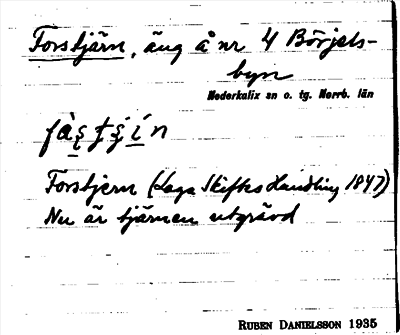 Forstjärn, äng å nr 4 Börjels-
byn
Nederkalix sn o. tg. Norrb. län
Forstjern (Laga Skifteshandling 1847)
Nu är tjärnen utgrävd
RUBEN DANIELSSON 1935